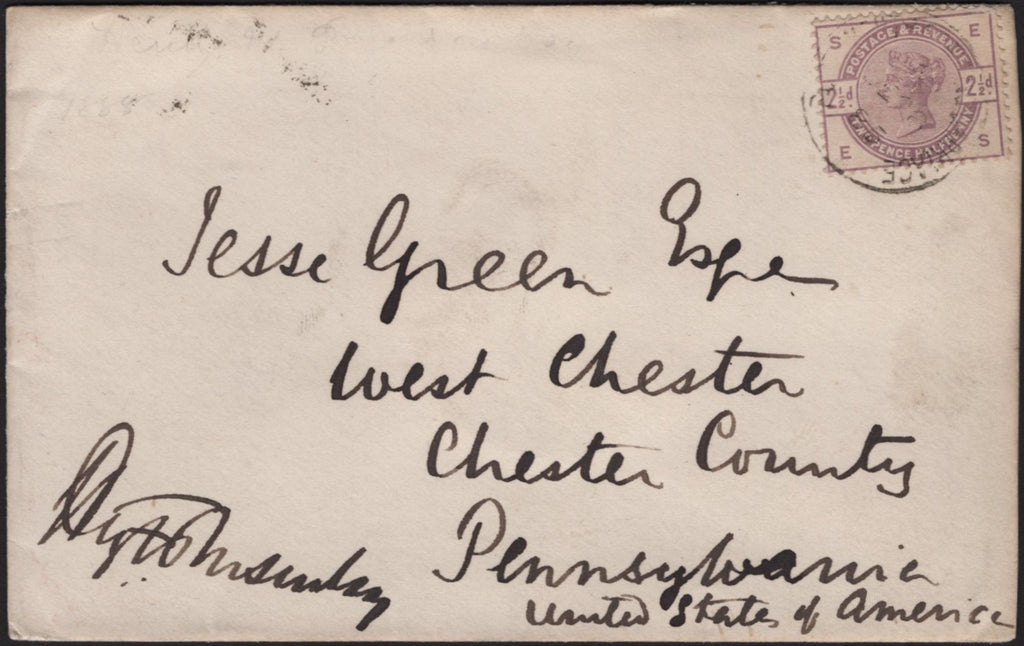 1888
POSTAGE & REVENUE
S E
2½d. 2½d.
E S
Jesse Green Esqre
West Chester
Chester County
Pennsylvania
United States of America